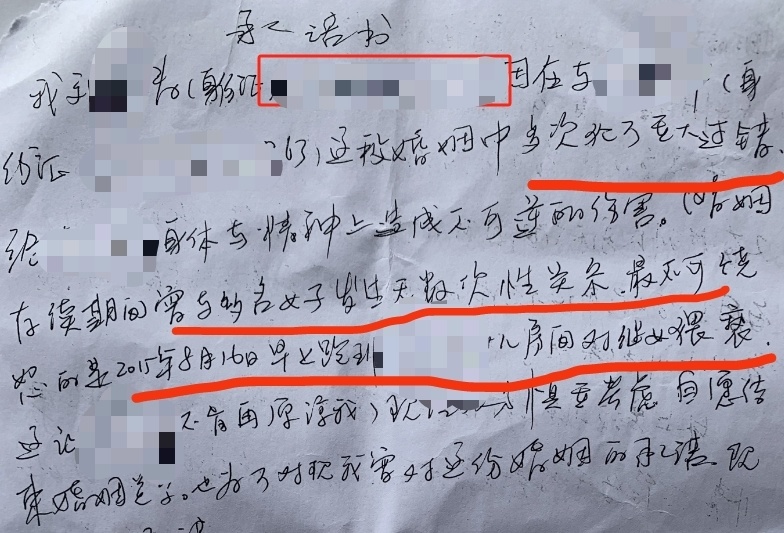 承诺书
我 (身份证 因在与 (身
份证 ) 这段婚姻中多次犯了重大过错.
给 身体与精神上造成不可逆的伤害。(婚姻
存续期间曾与多名女子发生无数次性关系.最不可饶
恕的是2015年8月16日早上跑到 房间对继女猥亵.
这让 不肯再原谅我) 现 慎重考虑 自愿结
束婚姻关系.也为了对现我曾对这份婚姻的承诺.现